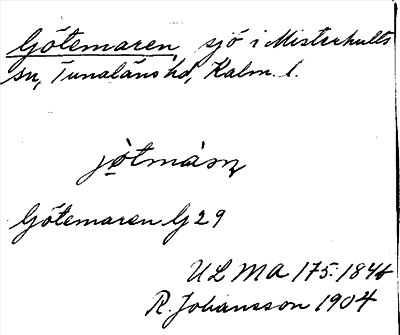 Götemaren, sjö i Misterhults
sn, Tunaläns hd, Kalm. l.
jö̀tmàsn
Götemaren Gj 29
ULMA 175:184b
R. Johansson 1904